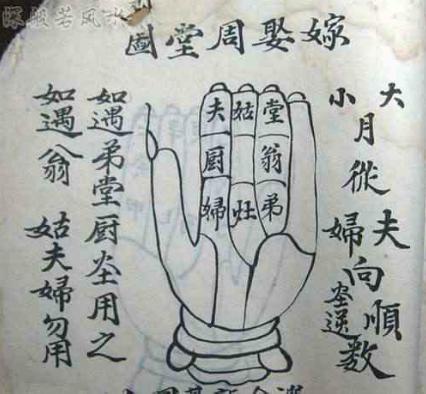 深般若风水
嫁娶周堂圖
大月從夫向順數
小婦向灶逆
堂翁弟
姑灶
夫厨婦
如遇弟堂厨灶用之
如遇翁姑夫婦勿用